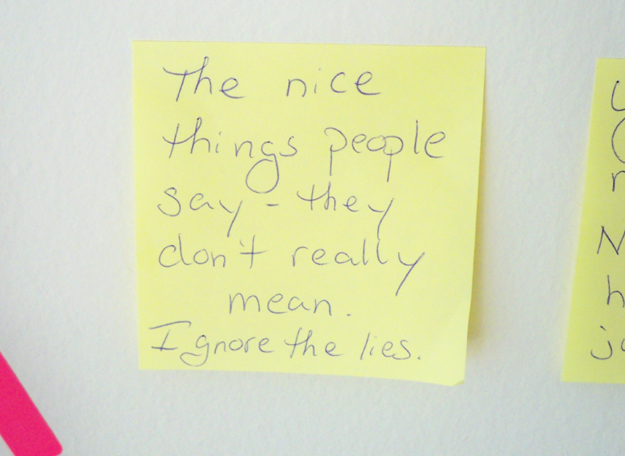 The nice
things people
say - they
don't really
mean.
Ignore the lies.